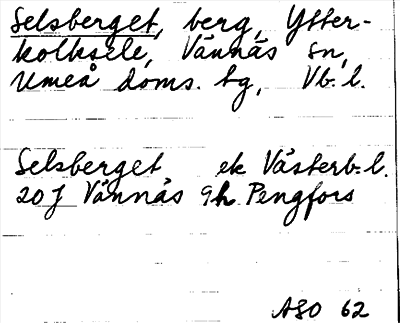 Selsberget, berg, Ytter-
kolksele, Vännäs sn,
Umeå doms. tg, Vb. l.
Selsberget ek Västerb. l.
20J Vännäs 9h Pengfors
ASO 62